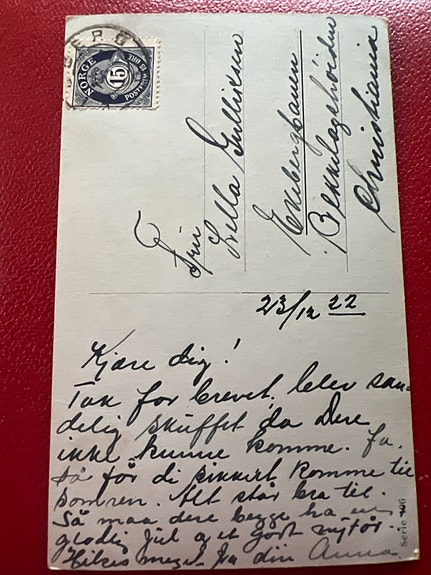 NORGE
15
POSTFRIM
Fru
Lella Gulliksen
Ekebergbanen
Bekkelagshöiden
Christiania
23/12 22
Kjære dig!
Tak for brevet. blev san-
delig skuffet da Dere
ikke kunne komme. Ja,
så får di sikkert komme til
somren. Alt står bra til.
Så maa dere begge ha en
gladig jul og et godt nytår.
Hilses meget fra din Anna
Serie 106